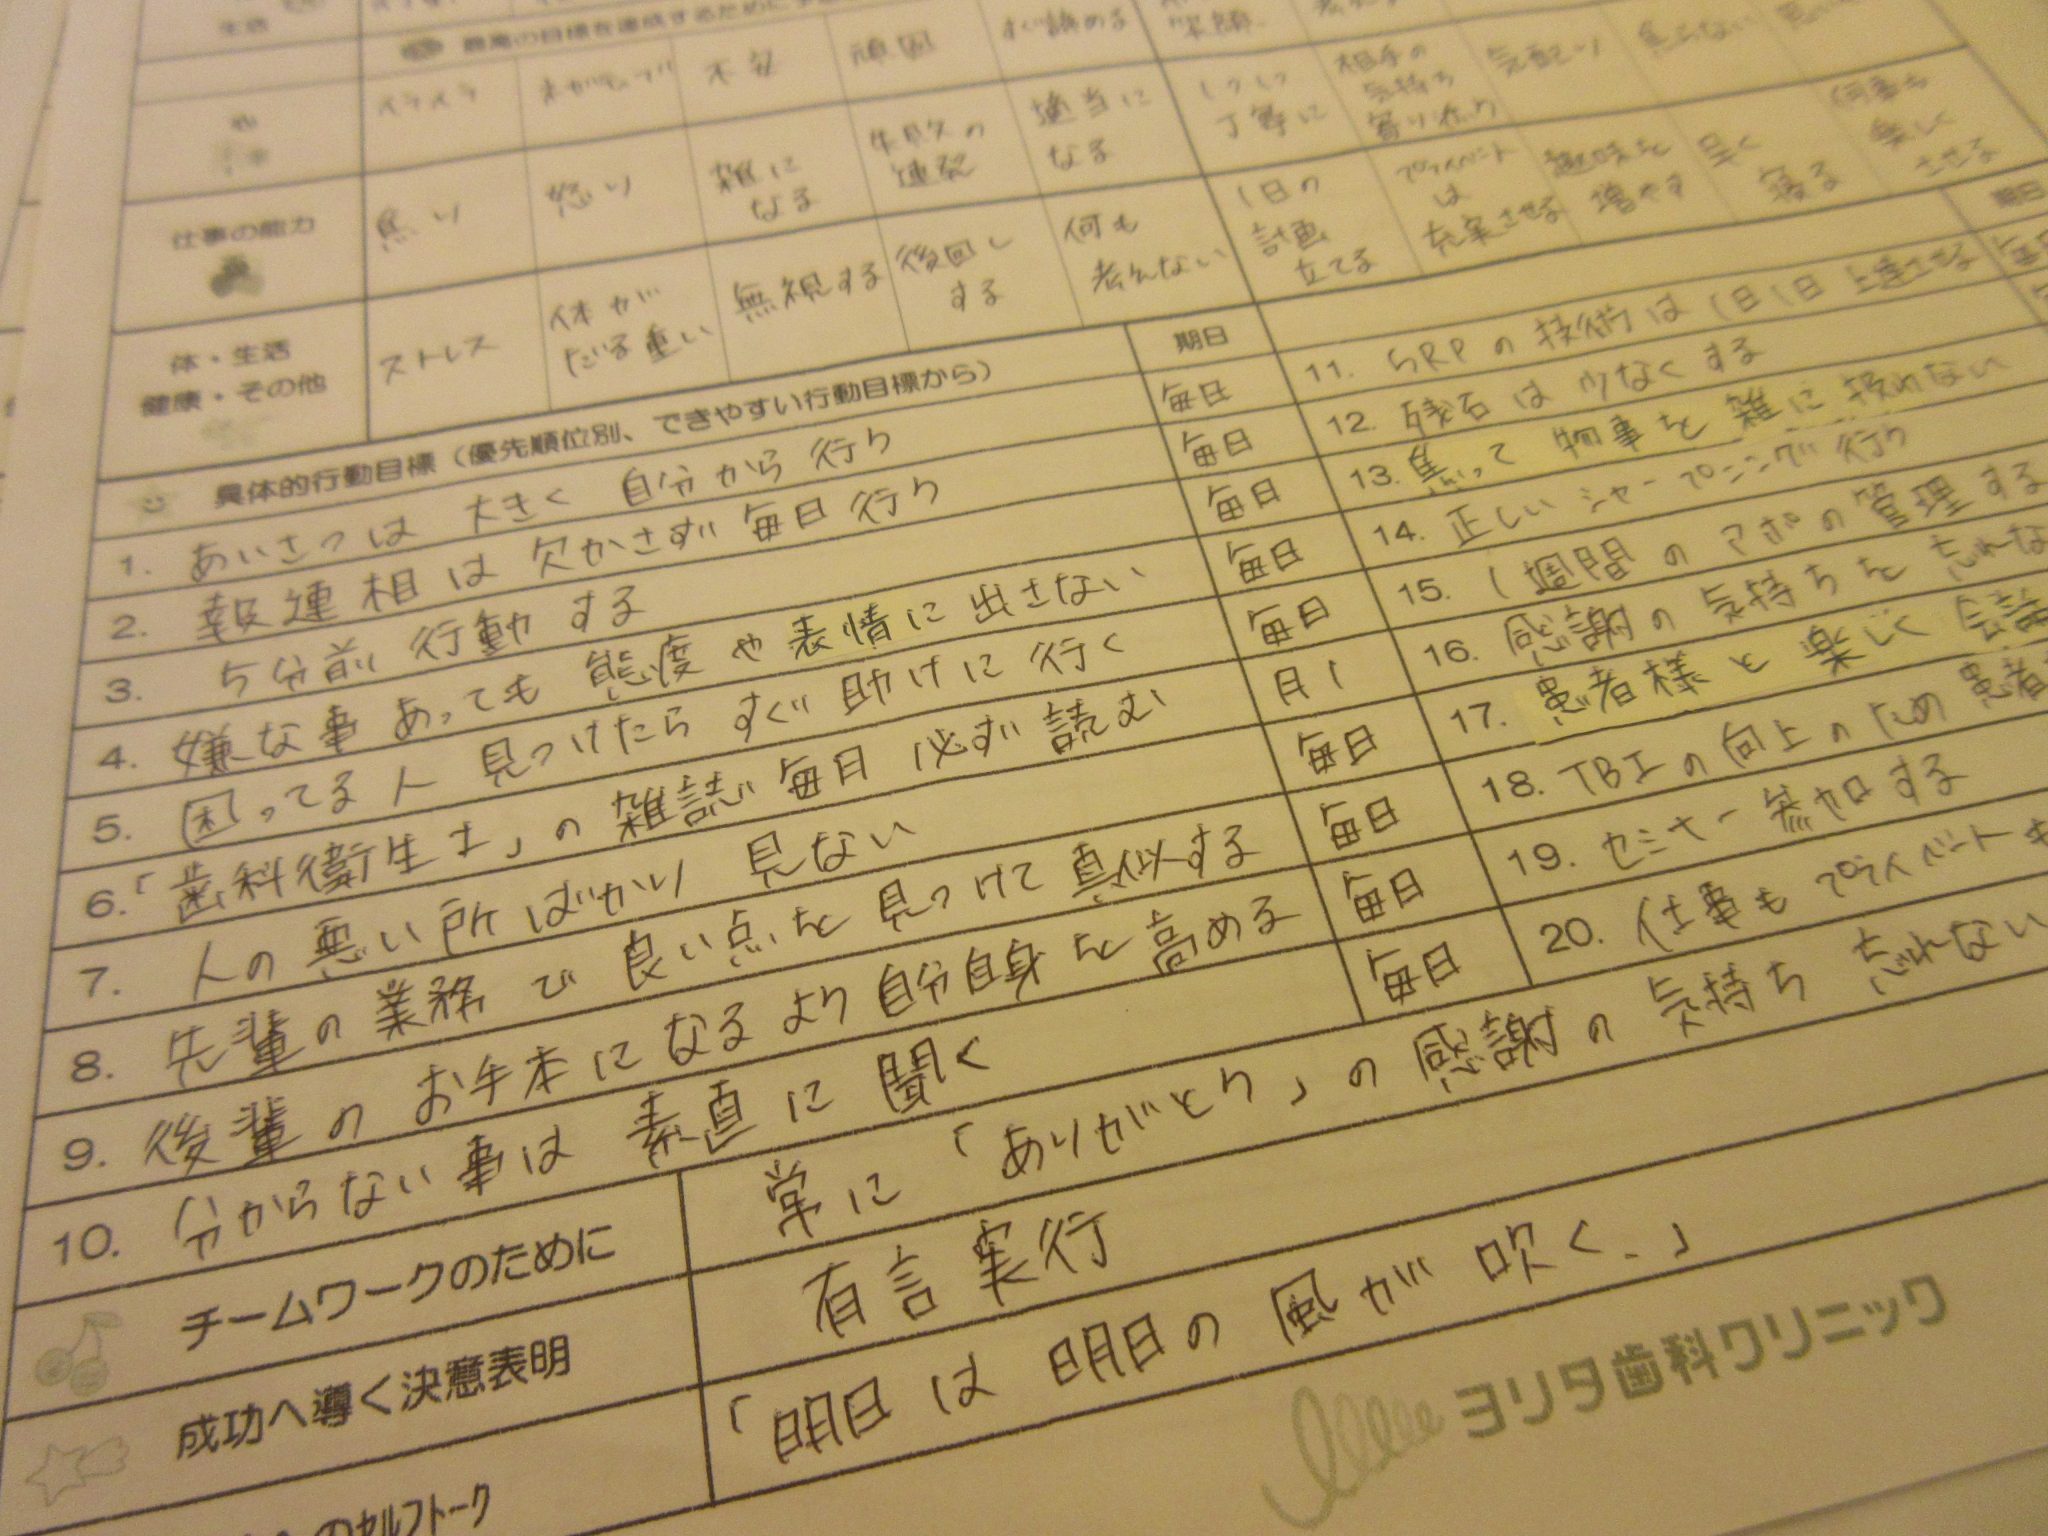 生活
最高の目標を達成するために
イライラ ネガティブ 不安 頑固 すぐ諦める 笑顔
仕事の能力 焦り 怒り 雑になる 失敗の連発 適当になる 1つ1つ丁寧に 相手の気持ち寄り添う 気配り 焦らない
体・生活 健康・その他 ストレス 体がだる重い 無視する 後回しする 何も考えない 1日の計画立てる プライベートは充実させる 趣味を増やす 早く寝る 何事も楽しくさせる
具体的行動目標(優先順位別、できやすい行動目標から) 期日 期日
1. あいさつは 大きく 自分から 行う 毎日
2. 報連相は 欠かさず 毎日 行う 毎日
3. 5分前 行動する 毎日
4. 嫌な事あっても 態度や表情に 出さない 毎日
5. 困ってる人 見つけたら すぐ 助けに行く 毎日
6. 「歯科衛生士」の 雑誌 毎日 必ず 読む 月1
7. 人の悪い所ばかり 見ない 毎日
8. 先輩の業務で 良い点を 見つけて 真似する 毎日
9. 後輩の お手本になるよう 自分自身を 高める 毎日
10. 分からない事は 素直に 聞く 毎日
11. SRPの技術は 1日1日 上達させる
12. 残石は 少なくする
13. 焦って 物事を 雑に 扱わない
14. 正しい シャープニング 行う
15. 1週間の アポの管理する
16. 感謝の 気持ちを 忘れな
17. 患者様と 楽しく 会話
18. TBIの向上のための 患者
19. セミナー参加する
20. 仕事も プライベートも
チームワークのために 常に「ありがとう」の 感謝の 気持ち 忘れない
成功へ導く決意表明 有言実行
のセルフトーク 「明日は 明日の 風が 吹く。」
ヨリタ歯科クリニック